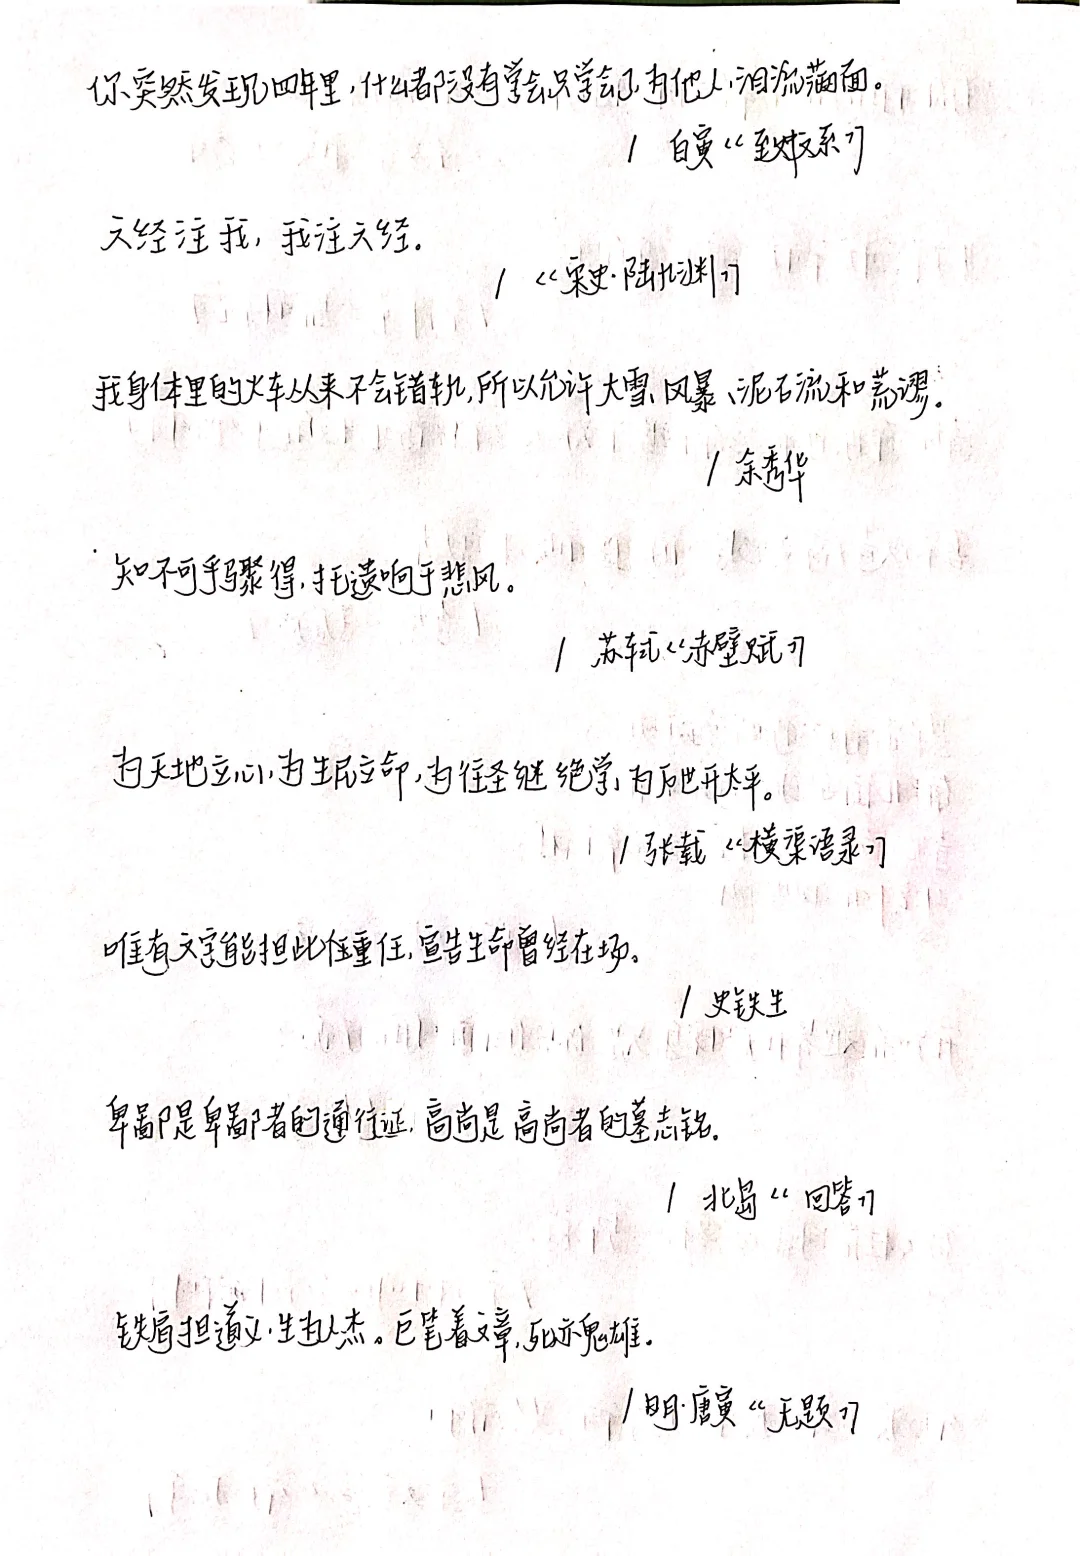 你突然发现四年里，什么都没有学会只学会了为他人，泪流满面。
/ 白寅《至中文系》
六经注我，我注六经.
/ 《宋史·陆九渊》
我身体里的火车从来不会错轨,所以允许大雪、风暴、泥石流和荒谬.
/ 余秀华
知不可乎骤得,托遗响于悲风。
/ 苏轼《赤壁赋》
为天地立心,为生民立命,为往圣继绝学,为后世开太平。
/ 张载《横渠语录》
唯有文字能担此任重任,宣告生命曾经在场。
/ 史铁生
卑鄙是卑鄙者的通行证,高尚是高尚者的墓志铭.
/ 北岛《回答》
铁肩担道义,生为人杰。巨笔着文章,死亦鬼雄.
/ 明·唐寅《无题》